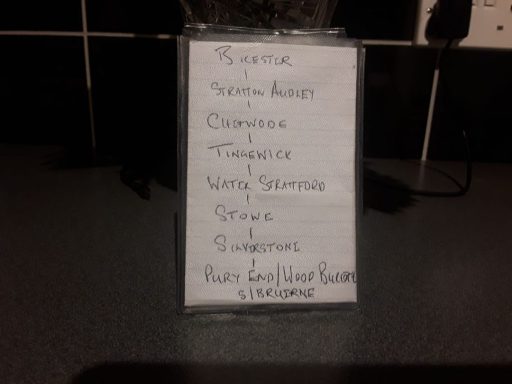 BICESTER
STRATTON AUDLEY
CHETWODE
TINGEWICK
WATER STRATFORD
STOWE
SILVERSTONE
PURY END/WOOD BURCOTE
S/BRUERNE